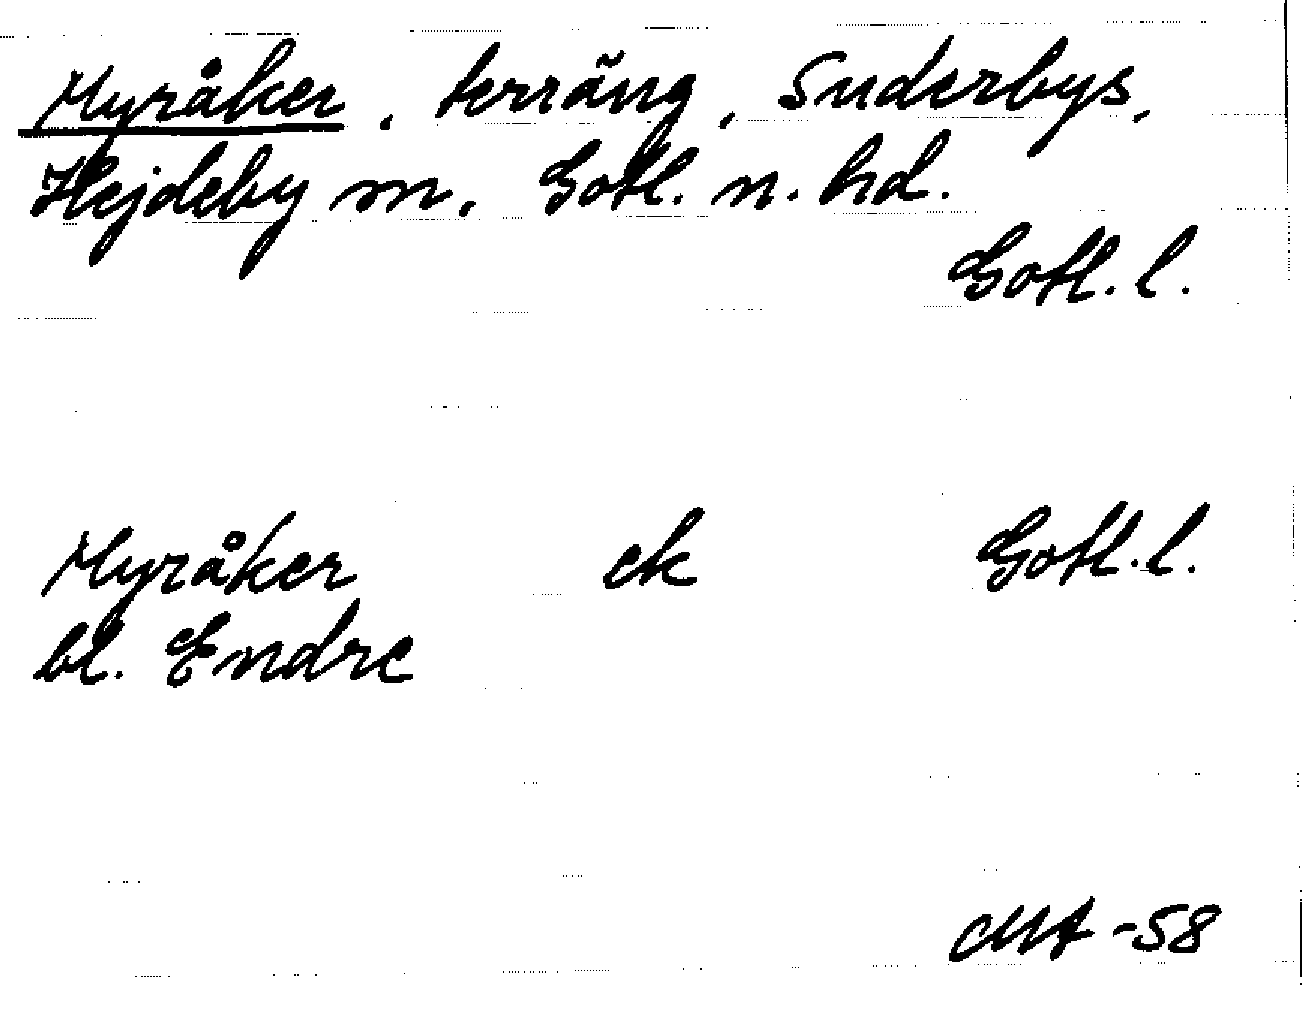 Myråker, terräng, Suderbys,
Hejdeby sn, Gotl. n. hd.
Gotl. l.
Myråker ek Gotl. l.
bl. Endre
MA -58